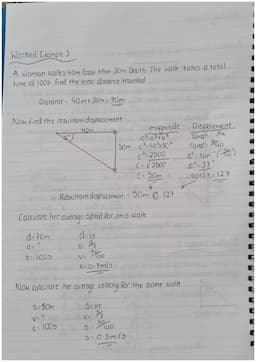 Worked Example 3
A woman walks 40m East then 30m South. The walk takes a total
time of 100s. Find the total distance travelled
Distance = 40m + 30m = 70m
Now find the resultant displacement
40m
30m
magnitude
c² = a² + b²
c² = 40² + 30²
c² = 2500
c = √2500
c = 50m
Displacement
∴ 90 + 37 = 127
∴ Resultant displacement = 50m @ 127
Calculate her average speed for this walk
d = 70m
v = ?
t = 100s
d = vt
v = d/t
v = 70/100
v = 0.7m/s
Now calculate her average velocity for the same walk
s = 50m
v = ?
t = 100s
s = vt
s = 50/100
s = 0.5m/s